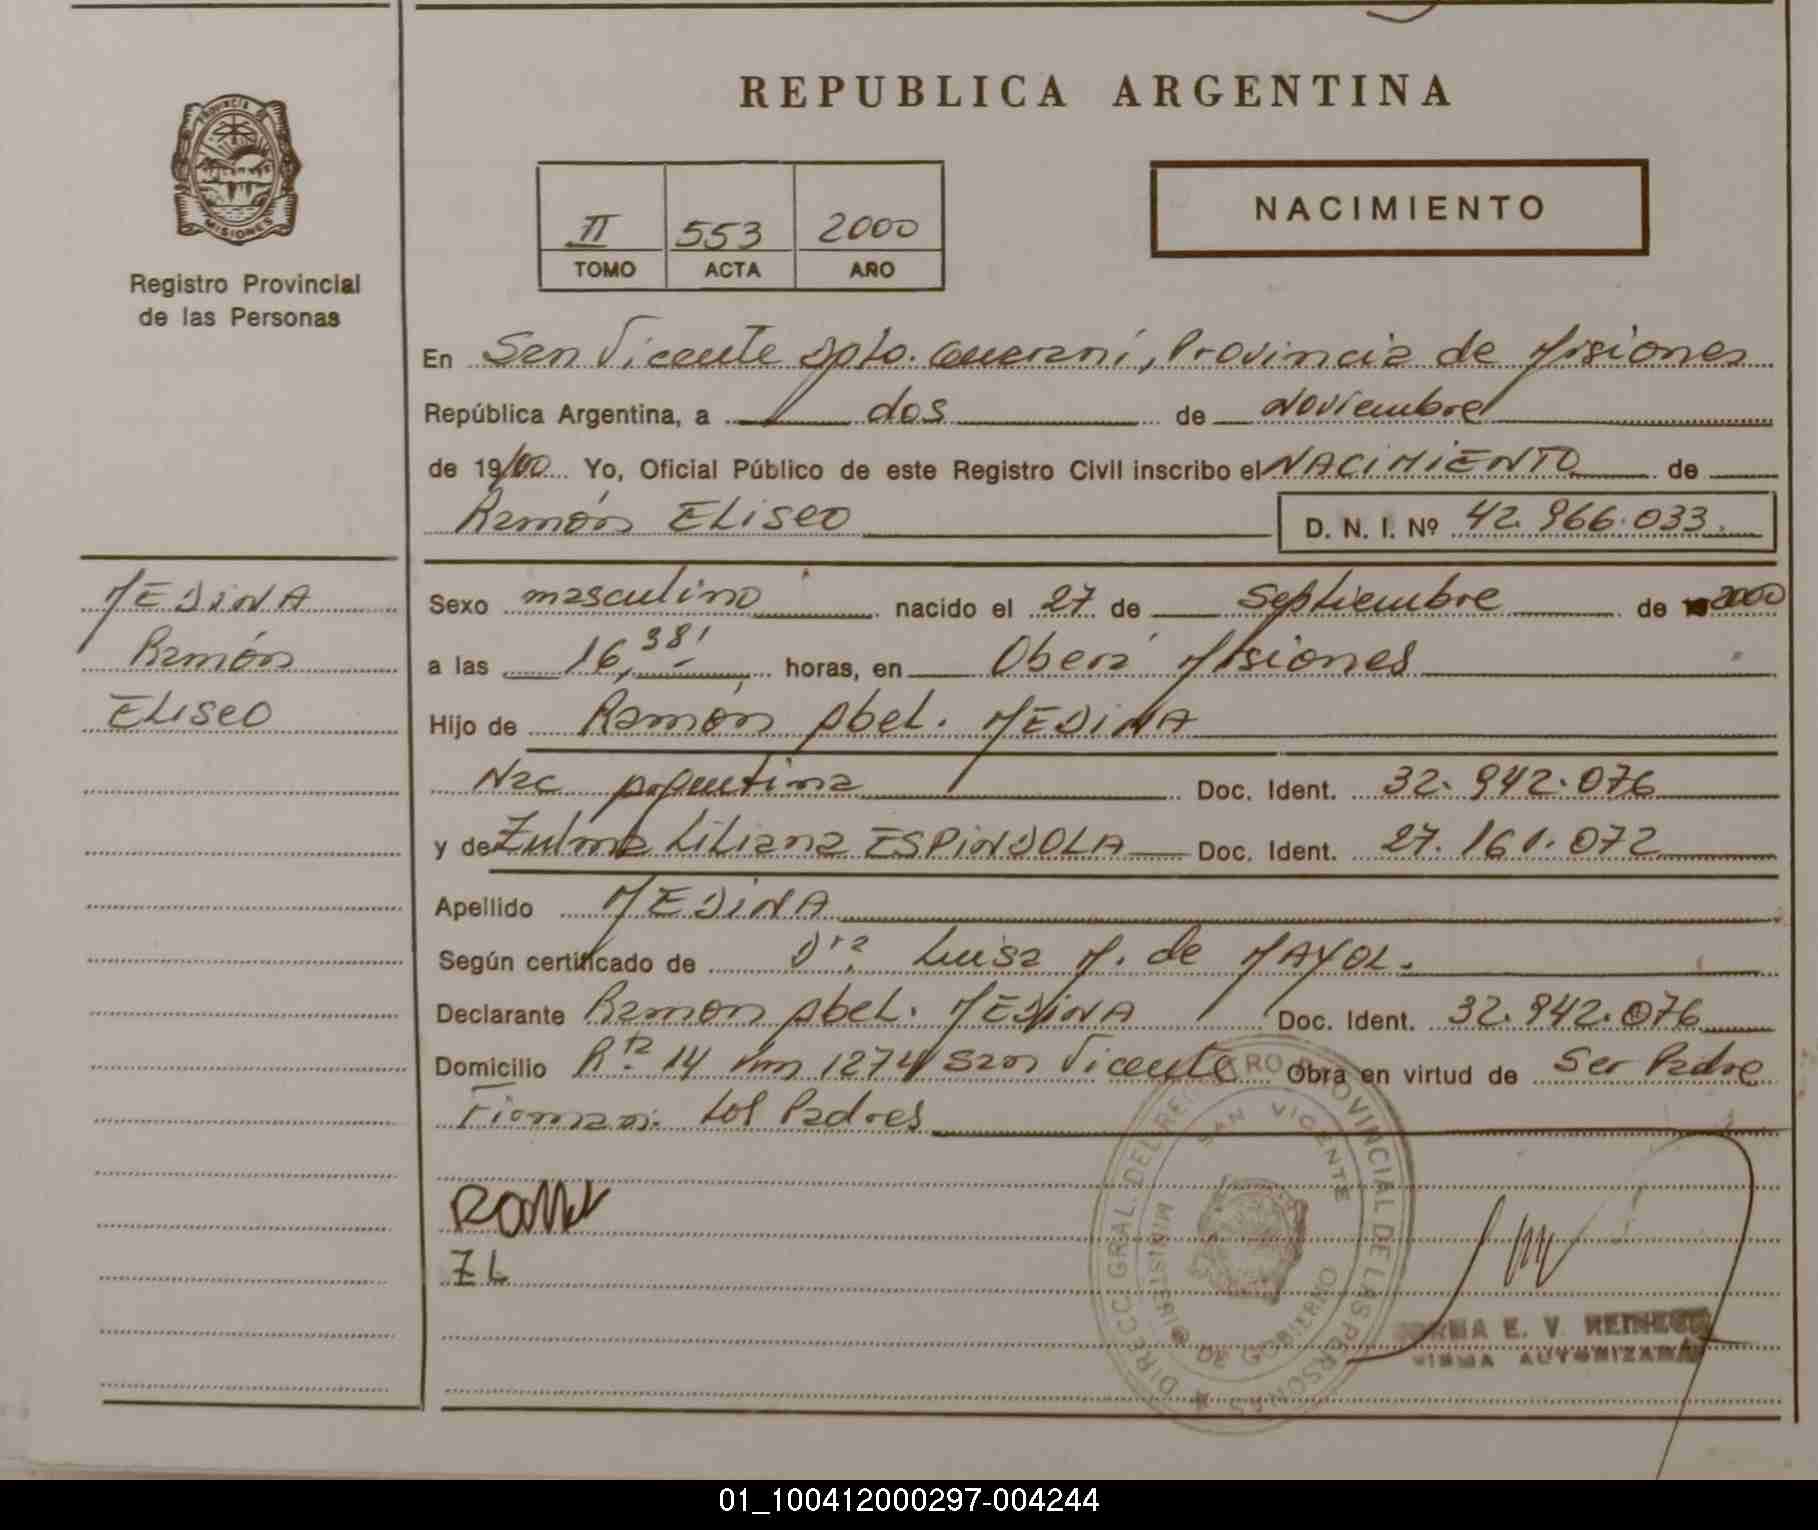 REPUBLICA ARGENTINA
PROVINCIA
MISIONES
Registro Provincial
de las Personas
II 553 2000
TOMO ACTA AÑO
NACIMIENTO
En San Vicente Dpto. Guaraní, Provincia de Misiones
República Argentina, a dos de Noviembre
de 19/00 Yo, Oficial Público de este Registro Civil inscribo el NACIMIENTO de
Ramón ELiseo D. N. I. Nº 42.966.033
MEDINA
Ramón
ELiseo
Sexo masculino nacido el 27 de Septiembre de 2000
a las 16,38' horas, en Oberá Misiones
Hijo de Ramón Abel. MEDINA
Nac Argentina Doc. Ident. 32.942.076
y de Zulma LiLiana ESPINDOLA Doc. Ident. 27.161.072
Apellido MEDINA
Según certificado de Dra. Luisa M. de MAYOL.
Declarante Ramon Abel. MEDINA Doc. Ident. 32.942.076
Domicilio Rta. 14 Km 1274 San Vicente Obra en virtud de Ser Padre
Firman: Los Padres
DIRECC. GRAL. DEL REGISTRO PROVINCIAL DE LAS PERSONAS
SAN VICENTE
MINISTERIO DE GOBIERNO
ZL
E. V.
FIRMA AUTORIZADA
01_100412000297-004244